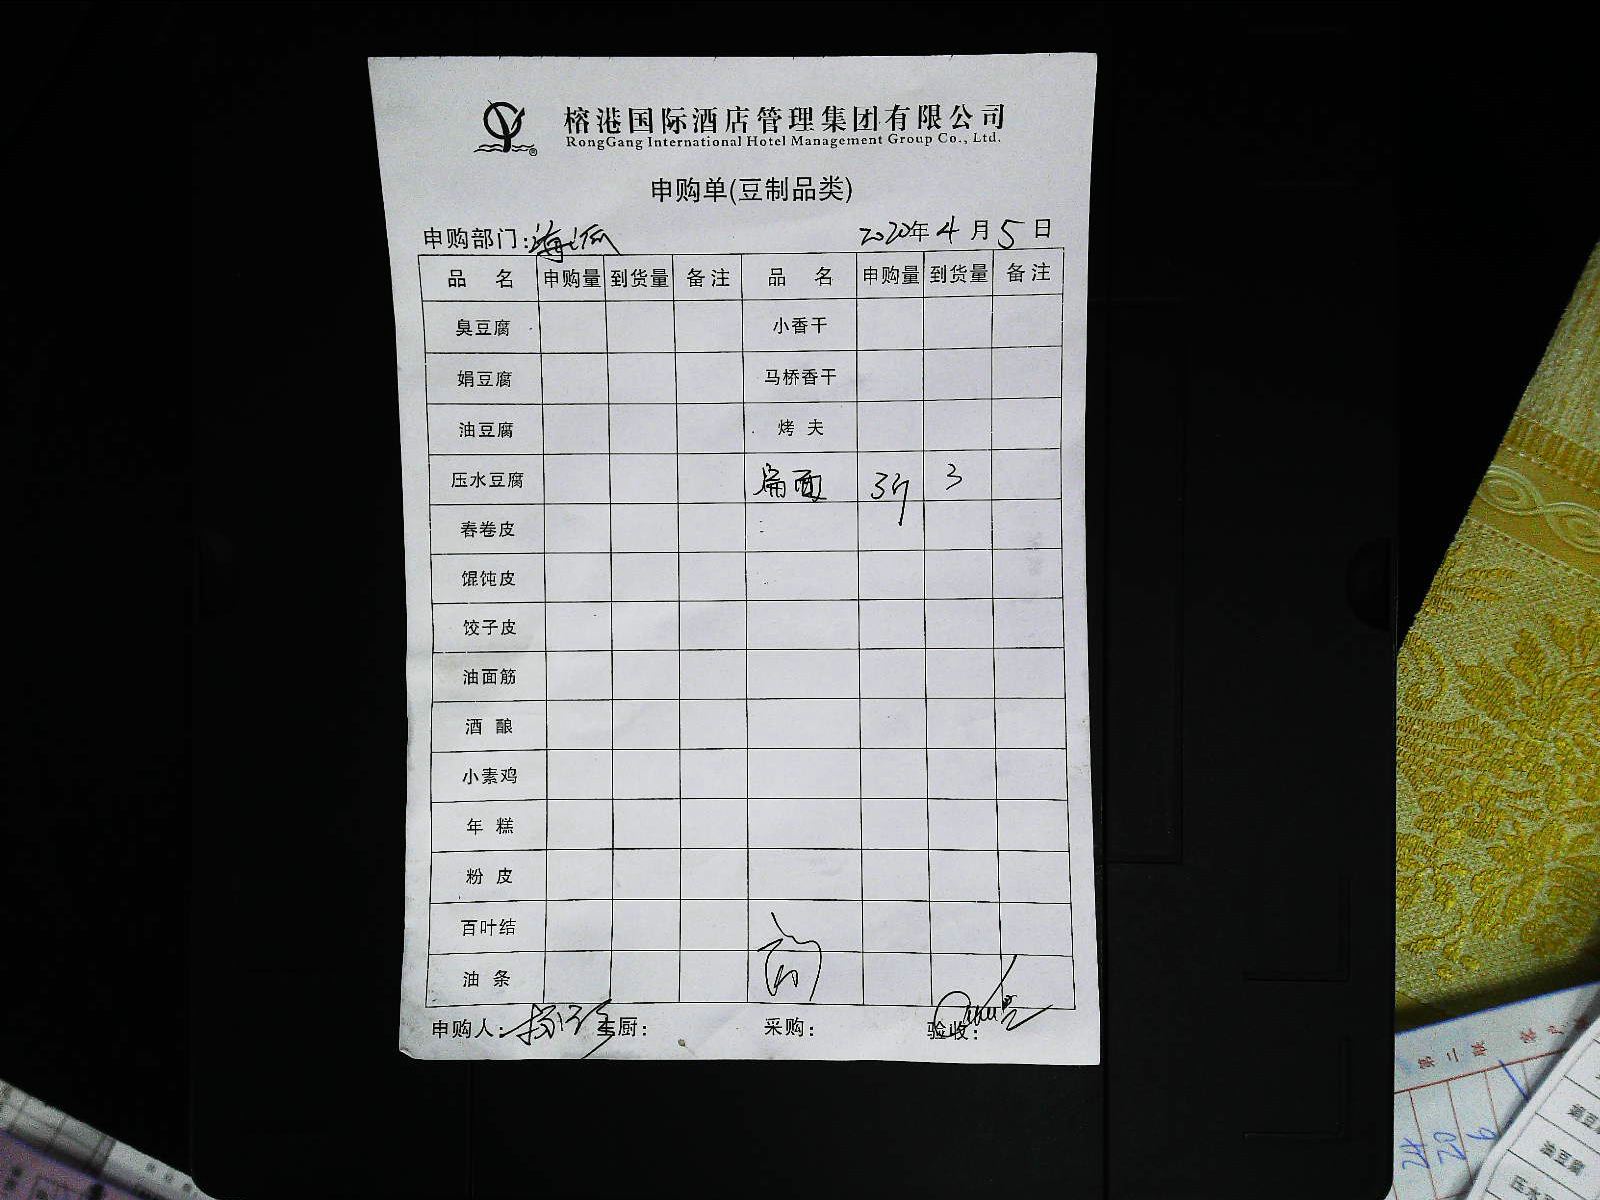 榕港国际酒店管理集团有限公司
RongGang International Hotel Management Group Co., Ltd.
申购单(豆制品类)
申购部门: 2020年4月5日
品 名 申购量 到货量 备注 品 名 申购量 到货量 备注
臭豆腐 小香干
娟豆腐 马桥香干
油豆腐 烤夫
压水豆腐 扁面 3斤 3
春卷皮
馄饨皮
饺子皮
油面筋
酒酿
小素鸡
年糕
粉皮
百叶结
油条
申购人: 主厨: 采购: 验收:
第二联 客户
24
20
6
油豆腐
压水